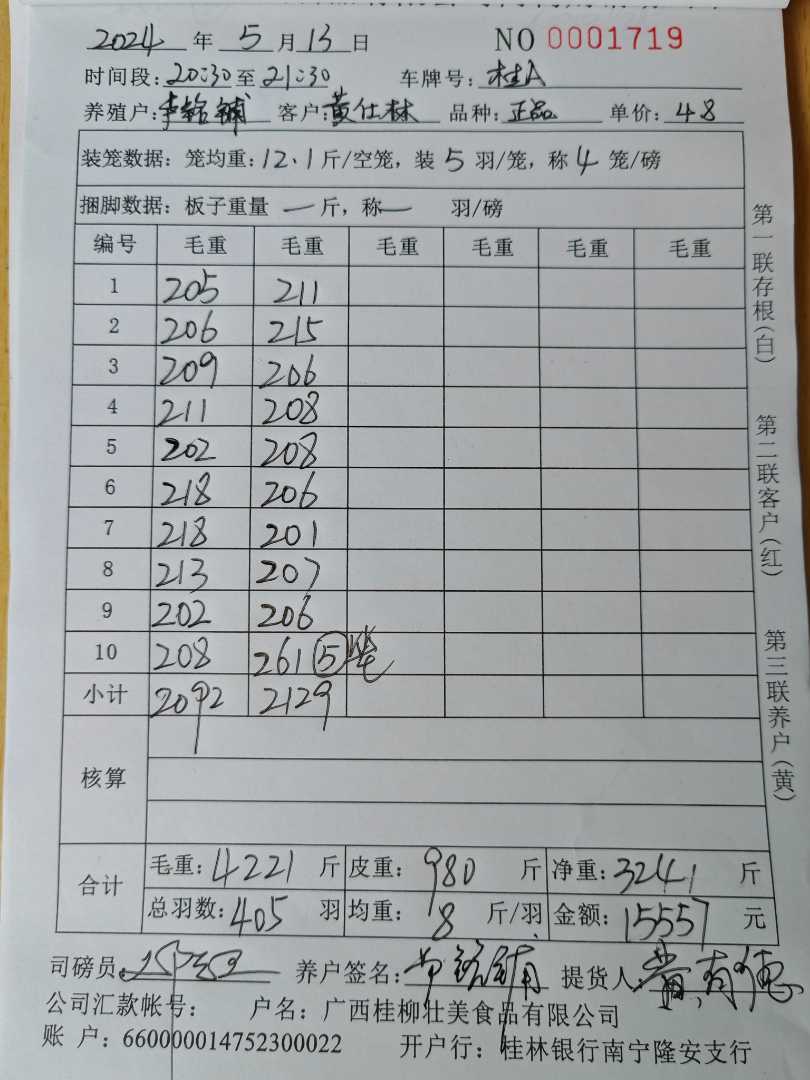 2024 年 5 月 13 日 NO 0001719
时间段: 20:30 至 21:30 车牌号: 桂A
养殖户: 李铭铺 客户: 黄仕林 品种: 正品 单价: 4.8
装笼数据: 笼均重: 12.1 斤/空笼, 装 5 羽/笼, 称 4 笼/磅
捆脚数据: 板子重量 — 斤, 称 — 羽/磅
编号 毛重 毛重 毛重 毛重 毛重 毛重
1 205 211
2 206 215
3 209 206
4 211 208
5 202 208
6 218 206
7 218 201
8 213 207
9 202 206
10 208 261 ⑤笼
小计 2092 2129
核算
合计 毛重: 4221 斤 皮重: 980 斤 净重: 3241 斤
总羽数: 405 羽 均重: 8 斤/羽 金额: 15557 元
司磅员: 养户签名: 提货人: 黄有德
公司汇款帐号: 户名: 广西桂柳壮美食品有限公司
账 户: 660000014752300022 开户行: 桂林银行南宁隆安支行
第一联存根(白)
第二联客户(红)
第三联养户(黄)